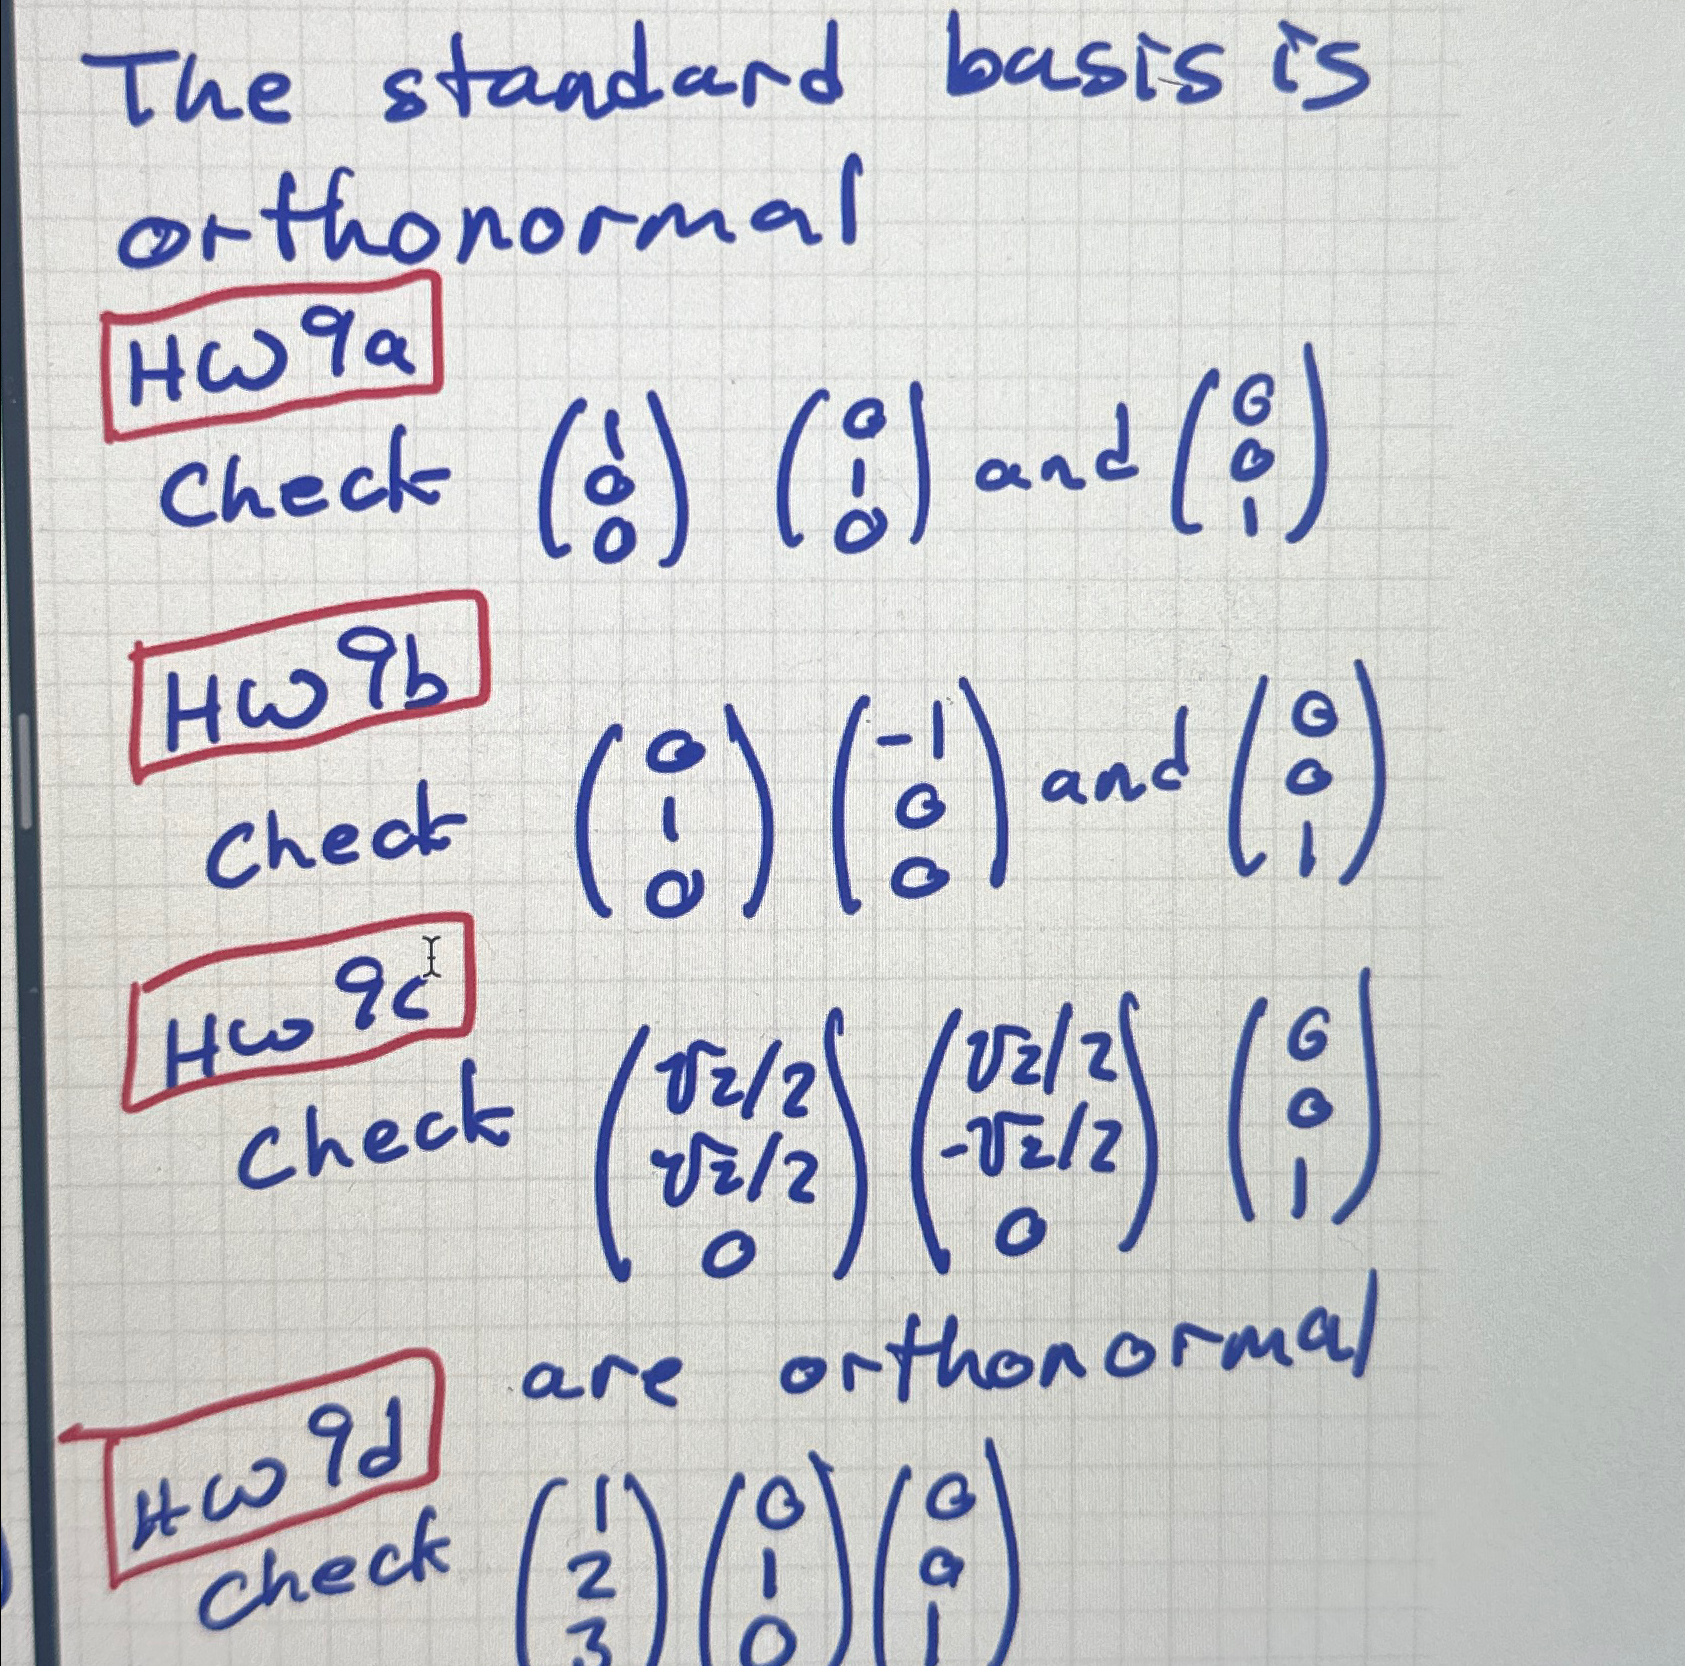 The standard basis is
orthonormal
HW 9a
Check (1 0 0) (0 1 0) and (0 0 1)
HW 9b
Check (0 1 0) (-1 0 0) and (0 0 1)
HW 9c
Check (√2/2 √2/2 0) (√2/2 -√2/2 0) (0 0 1)
are orthonormal
HW 9d
Check (1 2 3) (0 1 0) (0 0 1)